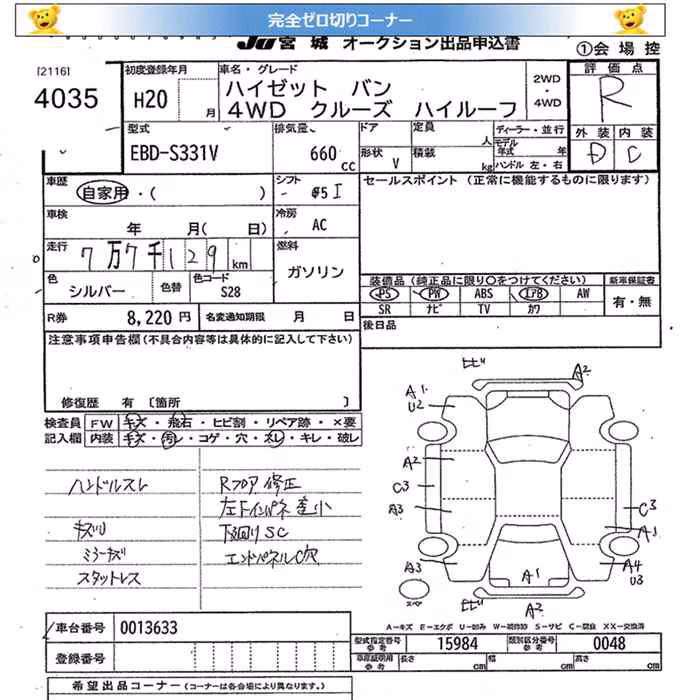 完全ゼロ切りコーナー
JU 宮城 オークション出品申込書
①会場控
[2116]
4035
初度登録年月
H20 月
車名・グレード
ハイゼット バン
4WD クルーズ ハイルーフ
2WD
・
4WD
評価点
R
外装 内装
D C
型式
EBD-S331V
排気量
660 cc
ドア
定員 人
形状 V
積載 kg
ディーラー・並行
モデル年式 年
ハンドル 左・右
車歴
自家用・( )
シフト
5 I
セールスポイント (正常に機能するものに限ります)
車検
年 月( 日)
冷房
AC
走行
7万7千129 km
燃料
ガソリン
色
シルバー
色替
色コード
S28
装備品(純正品に限り○をつけてください)
新車保証書
PS PW ABS エアB AW
SR ナビ TV カワ
有・無
R券
8,220円
名変通知期限 月 日
後日品
注意事項申告欄(不具合内容等は具体的に記入して下さい)
修復歴 有 〔箇所 〕
検査員 FW キズ・飛石・ヒビ割・リペア跡・×要
記入欄 内装 キズ・汚レ・コゲ・穴・スレ・キレ・破レ
ハンドルスレ
キズU
ミラーキズ
スタットレス
Rフロア修正
左下インパネ歪小
下廻りSC
エンドパネルC穴
ヒビ A2
A1
U2
A2
C3
A3
C3
A1
A3
A4
U3
A1
スペア
ヒビ
A2
A-キズ E-エクボ U-凹み W-補修跡 S-サビ C-腐食 XX-交換済
車台番号
0013633
登録番号
型式指定番号
15984
類別区分番号
0048
車庫証明用参考
長さ cm
幅 cm
高さ cm
希望出品コーナー(コーナーは各会場により異なります。)